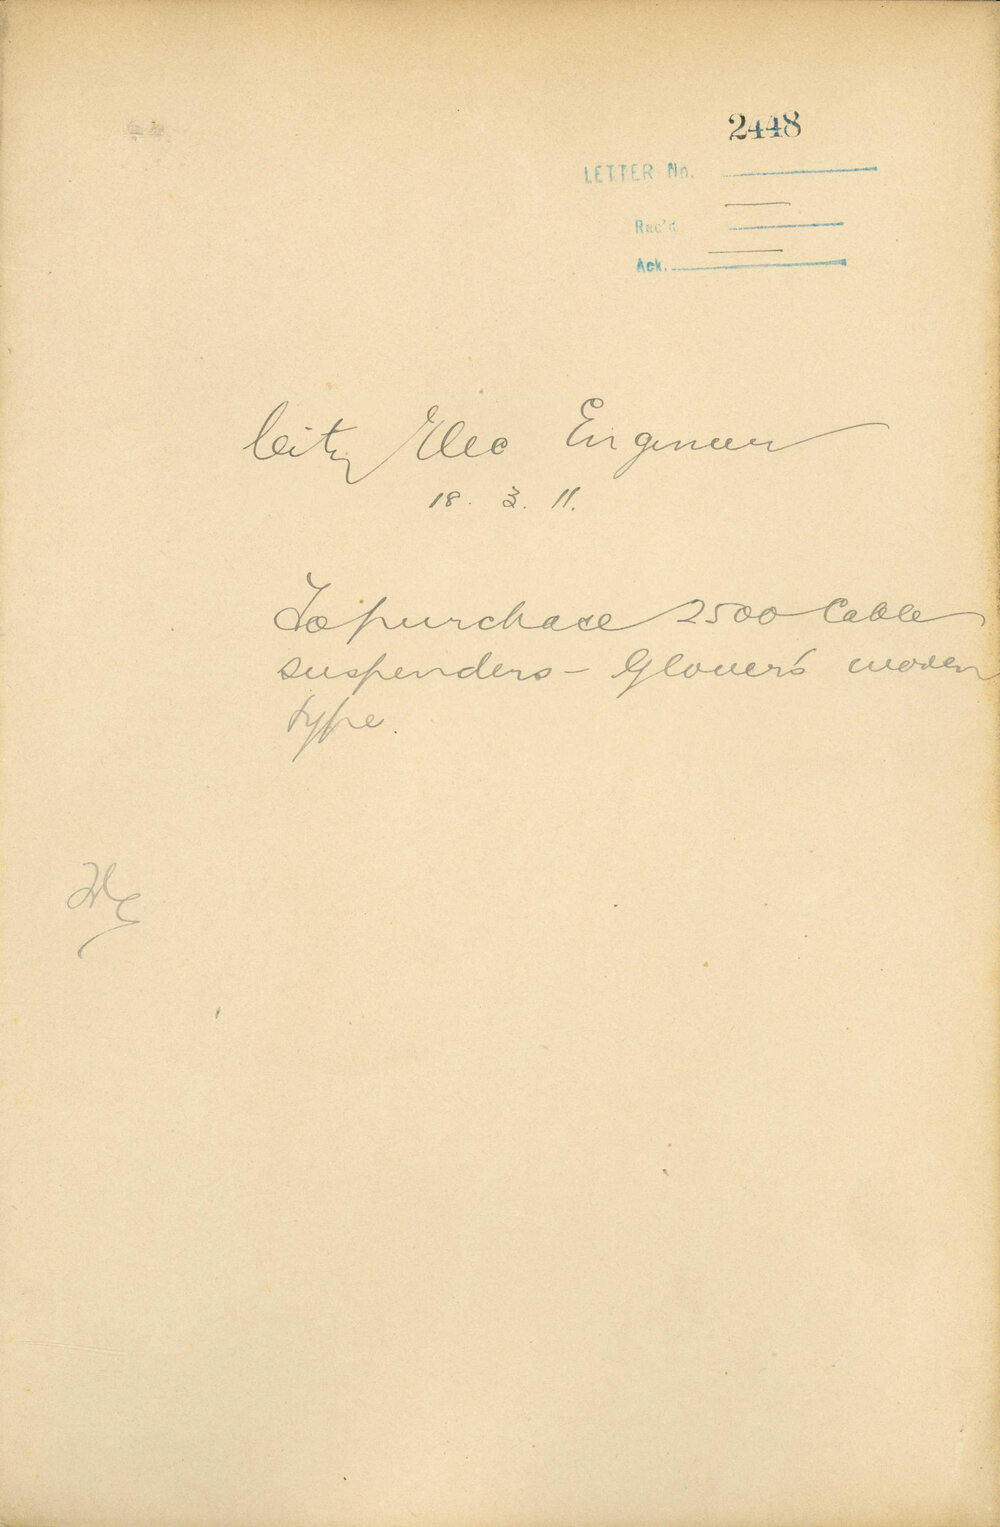 2448
LETTER No.
Rec'd
Ack.
City Elec Engineer
18. 3. 11.
To purchase 2500 Cable
suspenders - Glover's woven
type.